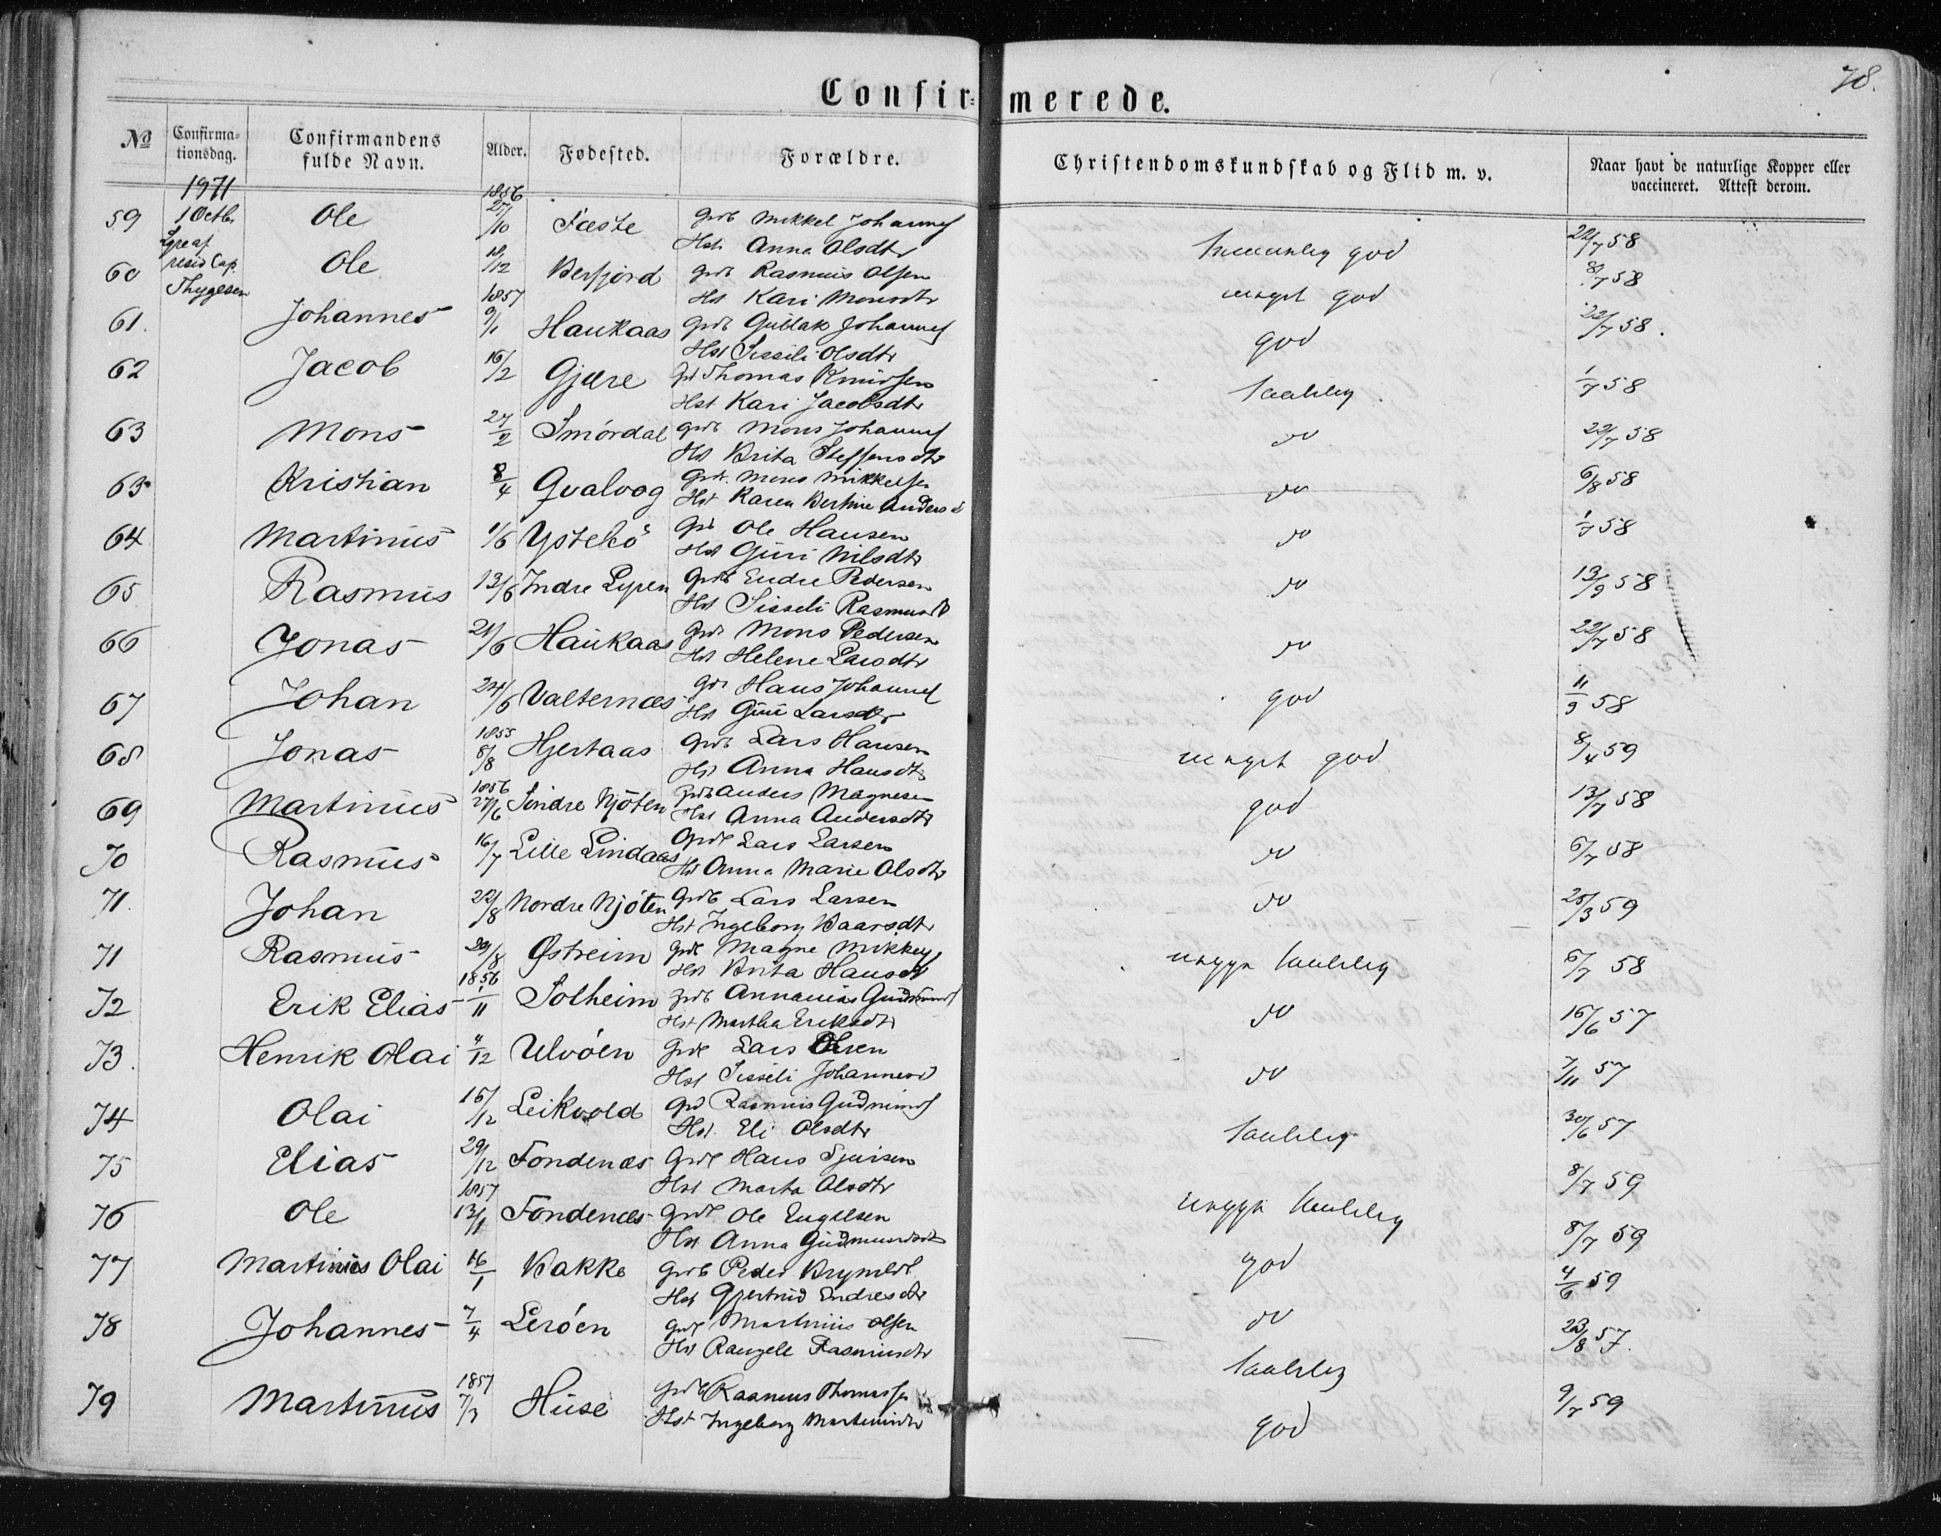 78.
Confirmerede.
No Confirmationsdag. Confirmandens fulde Navn. Alder. Fødested. Forældre. Christendomskundskab og Flid m. v. Naar havt de naturlige Kopper eller vaccineret. Attest derom.
1971 1856
59 1 Octbr Ole 27/10 Fæste Grdb Mikkel Johannes 22/7 58
Hst Anna Olsdtr god
60 resid Cap. Thygesen Ole 19/12 Berfjord Grdb Rasmus Olsen 8/7 58
Hst Kari Monsdtr meget god
1857
61. Johannes 9/1 Haukaas Grdb Gullak Johannes 22/7 58.
Hst Sissili Olsdtr god
62 Jacob 16/2 Gjære Grd Thomas Knudsen Taalelig 1/7 58
Hst Kari Jacobsdtr
63 Mons 27/2 Smørdal Grdb Mons Johannes do 22/7 58
Hst Brita Steffensdtr
63 Kristian 8/4 Qvalvog Grdb Mons Mikkelsen do 6/8 58
Hst Karen Bertine Andersd
64 Martinus 1/6 Ystebø Grd Ole Hansen do 1/7 58
Hst Guri Nilsdtr
65 Rasmus 13/6 Indre Lypen Grdb Endre Pedersen do 13/9 58
Hst Sisseli Rasmusd
66 Jonas 21/6 Haukaas Grdb Mons Pedersen do 22/7 58
Hst Helene Larsdtr
67 Johan 24/6 Valternæs Grd Hans Johannes god 11/9 58
Hst Guri Larsdtr
1855
68 Jonas 8/8 Hjertaas Grdb Lars Hansen meget god 8/4 59
Hst Anna Hansdtr
1856
69 Martinus 27/6 Søndre Njøten Grdb Anders Magnesen god 13/7 58
Hst Anna Andersdtr
70 Rasmus 16/7 Lille Lindaas Grdb Lars Larsen do 6/7 58
Hst Anna Marie Olsdtr
71. Johan 22/8 Nordre Njöten Grdb Lars Larsen do 25/3 59
Hst Ingeborg Baarsdtr
71 Rasmus 29/8 Østreim Grdb Magne Mikkels neppe taalelig 6/7 58
Hst Brita Hansdtr
1856
72 Erik Elias 1/11 Solheim Grdb Annanias Gudmunds do 16/6 57
Hst Martha Eriksdtr
73. Henrik Olai 4/12 Ulvöen Grdb Lars Olsen do 7/11 57
Hst Sisseli Johannesd
74 Olai 15/12 Leikvold Grd Rasmus Gudmunds Taalelig 30/6 57
Hst Eli Olsdtr
75 Elias 29/12 Fondenæs Grdb Hans Sjursen 8/7 59
Hst Marta Olsdtr
1857
76 Ole 13/1 Fondenæs Grdb Ole Engelsen neppe taalelig 8/7 59
Hst Anna Gudmundsdtr
77 Martinus Olai 16/1 Bakke Grdb Peder Brynilds god 4/6 59
Hst Gjertrud Endresdtr
78 Johannes 7/4 Leröen Grdb Martinus Olsen do 23/8 57.
Hst Rangele Rasmusdtr Taalelig
1857
79 Martinus 7/3 Huse Grdb Rasmus Thomassen 9/7 59
Hst Ingeborg Martinusdtr god